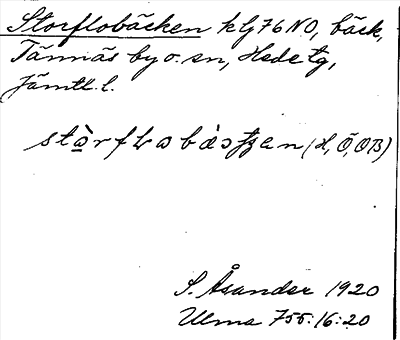 Storflobäcken klj76NO, bäck,
Tännäs by o. sn, Hede tg,
Jämtl. l.
(H, Ö, OB)
S. Åsander 1920
Ulma 755:16:20